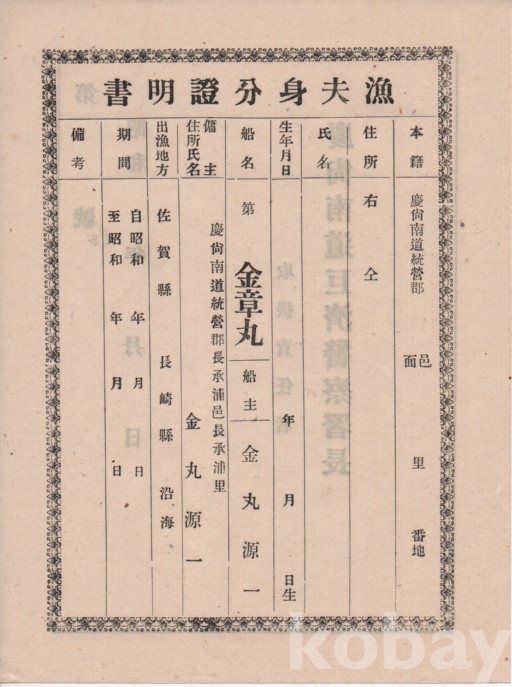 漁夫身分證明書
本籍 慶尙南道統營郡 邑面 里 番地
住所 右仝
氏名
生年月日 年 月 日生
船名 第 金章丸 船主 金丸源一
傭主住所氏名 慶尙南道統營郡長承浦邑長承浦里 金丸源一
出漁地方 佐賀縣 長崎縣 沿海
期間 自昭和 年 月 日
至昭和 年 月 日
備考
慶尙南道巨濟警察署長
第 號
kobay